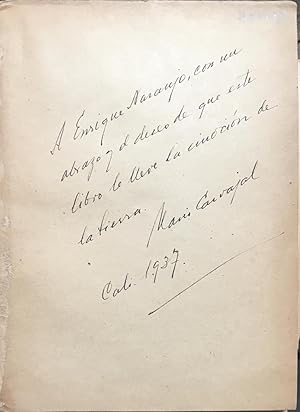 A Enrique Naranjo, con un
abrazo y el deseo de que este
libro le lleve la emoción de
la tierra.
Mario Carvajal
Cali. 1937.